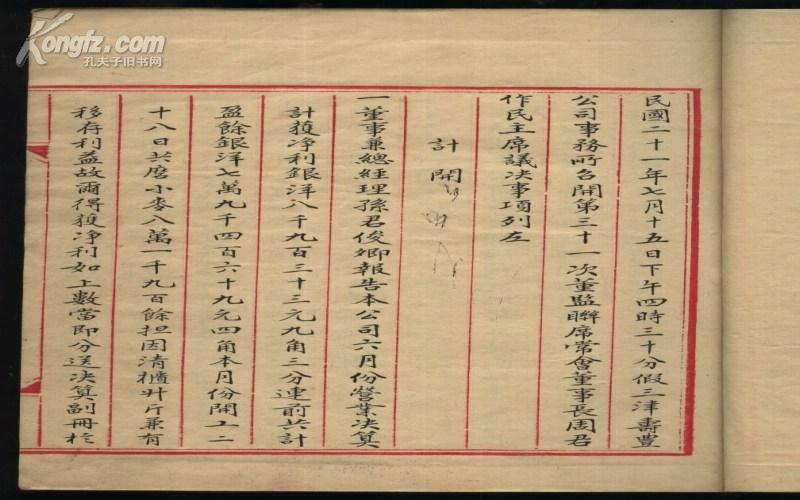 Kongfz.com
孔夫子旧书网
民國二十一年七月十五日下午四時三十分假三津壽豊
公司事務所召開第三十一次董監聯席常會董事長周君
作民主席議決事項列左
計開
一董事兼總經理孫君俊卿報告本公司六月份營業決算
計獲净利銀洋八千九百三十三元九角三分連前共計
盈餘銀洋七萬九千四百六十九元四角本月份開工二
十八日共磨小麥八萬一千九百餘担因清櫃升斤兼有
移存利益故爾得獲净利如上數當即分送決算副冊於